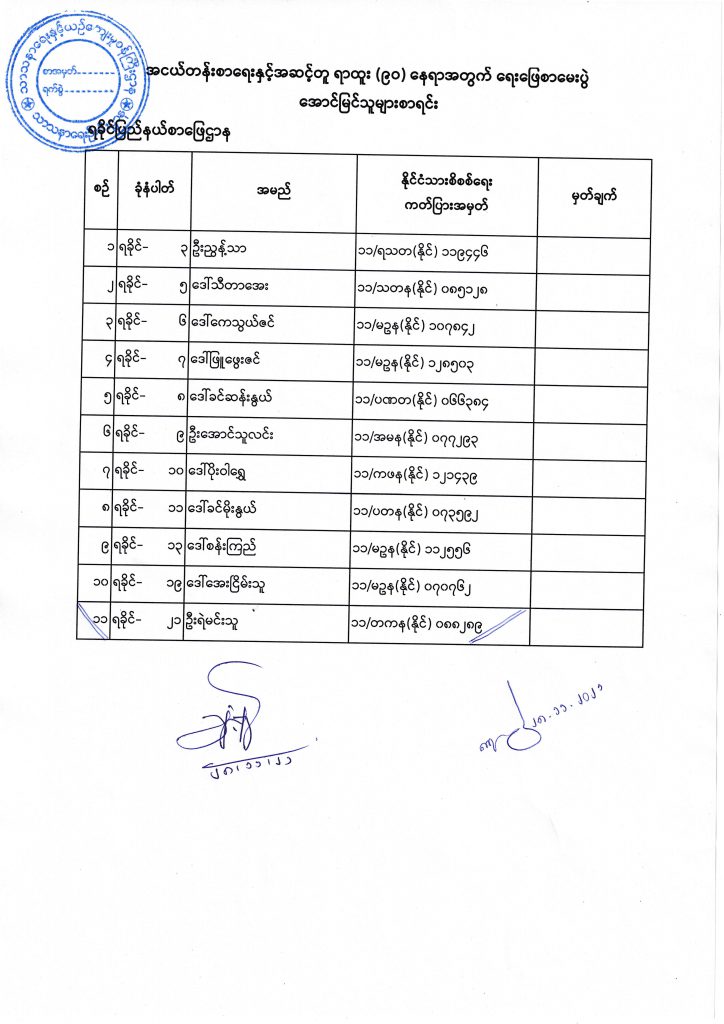 သာသနာရေးနှင့်ယဉ်ကျေးမှုဝန်ကြီးဌာန
စာအမှတ်
ရက်စွဲ
အငယ်တန်းစာရေးနှင့်အဆင့်တူ ရာထူး (၉၀) နေရာအတွက် ရေးဖြေစာမေးပွဲ
အောင်မြင်သူများစာရင်း
ရခိုင်ပြည်နယ်စာဖြေဌာန
စဉ် ခုံနံပါတ် အမည် နိုင်ငံသားစိစစ်ရေး ကတ်ပြားအမှတ် မှတ်ချက်
၁ ရခိုင်- ၃ ဦးညွန့်သာ ၁၁/ရသတ(နိုင်) ၁၁၉၄၄၆
၂ ရခိုင်- ၅ ဒေါ်သီတာအေး ၁၁/သတန(နိုင်) ၀၈၅၁၂၈
၃ ရခိုင်- ၆ ဒေါ်ကေသွယ်ဇင် ၁၁/မဥန(နိုင်) ၁၀၇၈၄၂
၄ ရခိုင်- ၇ ဒေါ်ဖြူဖွေးဇင် ၁၁/မဥန(နိုင်) ၁၂၈၅၀၃
၅ ရခိုင်- ၈ ဒေါ်ခင်ဆန်းနွယ် ၁၁/ပဏတ(နိုင်) ၀၆၆၃၈၄
၆ ရခိုင်- ၉ ဦးအောင်သူလင်း ၁၁/အမန(နိုင်) ၀၇၇၂၉၃
၇ ရခိုင်- ၁၀ ဒေါ်ပိုးဝါရွှေ ၁၁/ကဖန(နိုင်) ၁၂၁၄၃၉
၈ ရခိုင်- ၁၁ ဒေါ်ခင်မိုးနွယ် ၁၁/ပတန(နိုင်) ၀၇၃၅၉၂
၉ ရခိုင်- ၁၃ ဒေါ်စန်းကြည် ၁၁/မဥန(နိုင်) ၁၁၂၅၅၆
၁၀ ရခိုင်- ၁၉ ဒေါ်အေးငြိမ်းသူ ၁၁/မဥန(နိုင်) ၀၇၀၇၆၂
၁၁ ရခိုင်- ၂၁ ဦးရဲမင်းသူ ၁၁/တကန(နိုင်) ၀၈၈၂၈၉
၂၈.၁၁.၂၀၂၁
၂၈၊၁၁၊၂၁